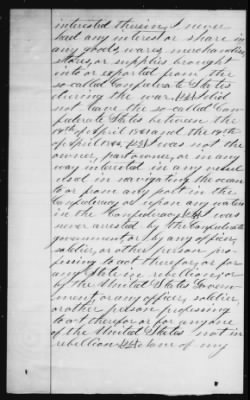 interested therein, I never
had any interest or share in
any goods, wares, merchandise,
stores, or supplies brought
into or exported from the
so-called Confederate States
during the war. I did
not leave the so-called Con-
federate States between the
19th of April 1861 and the 19th
of April 1865. I was not the
owner, part owner, or in any
way interested in any vessel
in navigating the
to or from any port in the
Confederacy or upon any waters
in the Confederacy. I was
never arrested by the Confederate
government, or by any officer,
soldier, or other person pro-
fessing to act therefor, or for
any State in rebellion, or
by the United States Govern-
ment, or any officer, soldier,
or other person professing
to act therefor or for any one
of the United States not in
rebellion. None of my